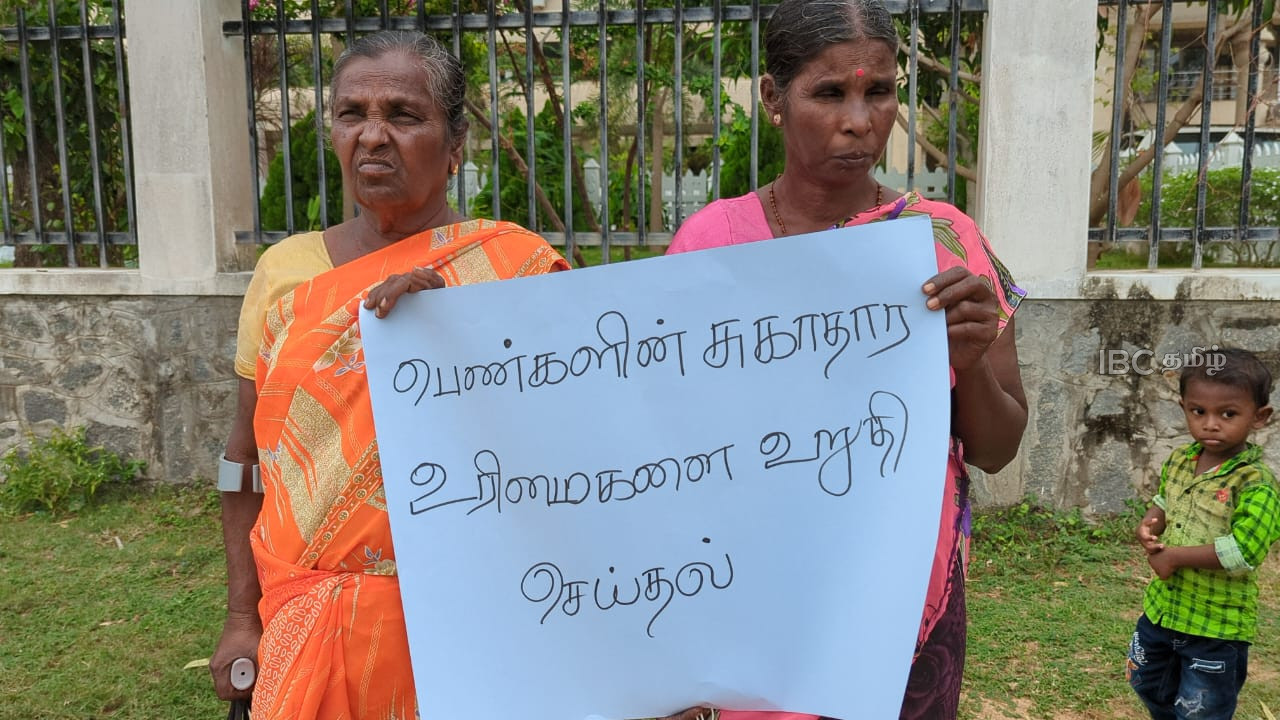 பெண்களின் சுகாதார
உரிமைகனை உறுதி
செய்தல்
IBC தமிழ்